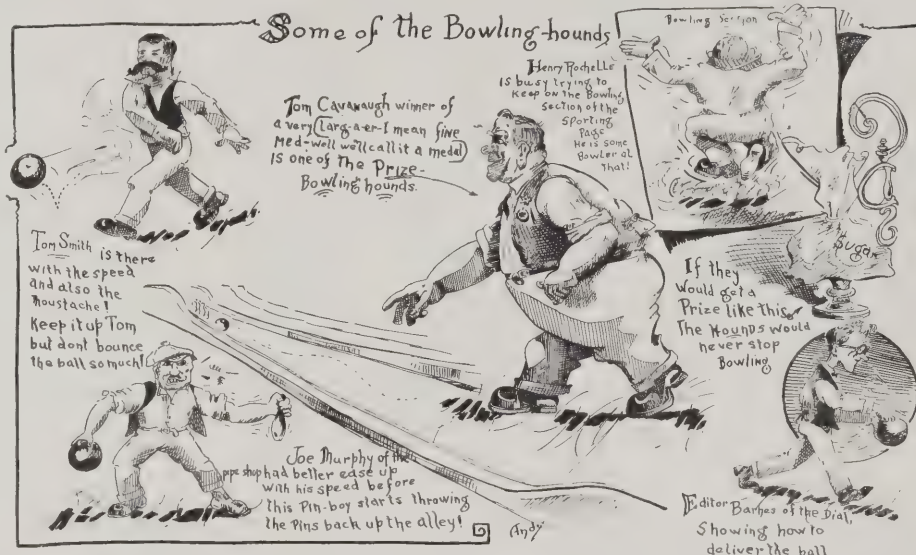 Some of the Bowling-hounds
Tom Cavanaugh winner of
a very (Larg-a-er-I mean fine
Med-well we'll call it a medal)
is one of the Prize-
Bowling hounds.
Henry Rochelle
is busy trying to
keep on the Bowling
Section of the
Sporting
Page
He is some
Bowler at
that!
Bowling Section
Tom Smith is there
with the speed
and also the
moustache!
Keep it up Tom
but dont bounce
the ball so much!
Sugar
If they
would get a
Prize like this
The Hounds would
never stop
Bowling
Joe Murphy of the
pipe shop had better ease up
with his speed before
this Pin-boy starts throwing
the Pins back up the alley!
Andy
Editor Barnes of the Dial,
Showing how to
deliver the ball